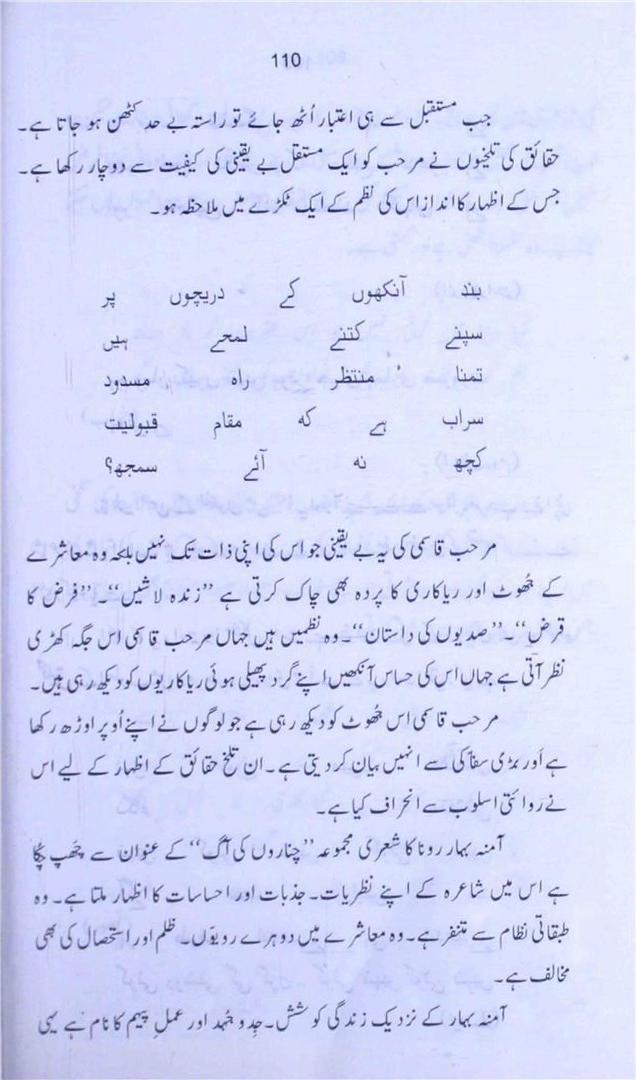 110
جب مستقبل سے ہی اعتبار اُٹھ جائے تو راستہ بے حد کٹھن ہو جاتا ہے۔
حقائق کی تلخیوں نے مرحب کو ایک مستقل بے یقینی کی کیفیت سے دوچار رکھا ہے۔
جس کے اظہار کا انداز اس کی نظم کے ایک ٹکڑے میں ملاحظہ ہو۔
بند آنکھوں کے دریچوں پر
سپنے کتنے لمحے ہیں
تمنا منتظر راہ مسدود
سراب ہے کہ مقام قبولیت
کچھ نہ آئے سمجھ؟
مرحب قاسمی کی یہ بے یقینی جو اس کی اپنی ذات تک نہیں بلکہ وہ معاشرے
کے جُھوٹ اور ریاکاری کا پردہ بھی چاک کرتی ہے ”زندہ لاشیں“۔ ”فرض کا
قرض“۔ ”صدیوں کی داستان“۔ وہ نظمیں ہیں جہاں مرحب قاسمی اس جگہ کھڑی
نظر آتی ہے جہاں اس کی حساس آنکھیں اپنے گرد پھیلی ہوئی ریاکاریوں کو دیکھ رہی ہیں۔
مرحب قاسمی اس جُھوٹ کو دیکھ رہی ہے جو لوگوں نے اپنے اُوپر اوڑھ رکھا
ہے اَور بڑی سفاکی سے انہیں بیان کر دیتی ہے۔ ان تلخ حقائق کے اظہار کے لیے اس
نے روائتی اسلوب سے انحراف کیا ہے۔
آمنہ بہار رونا کا شعری مجموعہ ”چناروں کی آگ“ کے عنوان سے چَھپ چُکا
ہے اس میں شاعرہ کے اپنے نظریات۔ جذبات اور احساسات کا اظہار ملتا ہے۔ وہ
طبقاتی نظام سے متنفر ہے۔ وہ معاشرے میں دوہرے رویوّں۔ ظلم اور استحصال کی بھی
مخالف ہے۔
آمنہ بہار کے نزدیک زندگی کوشش۔ جِدو جُہد اور عملِ پیہم کا نام ہے یہی